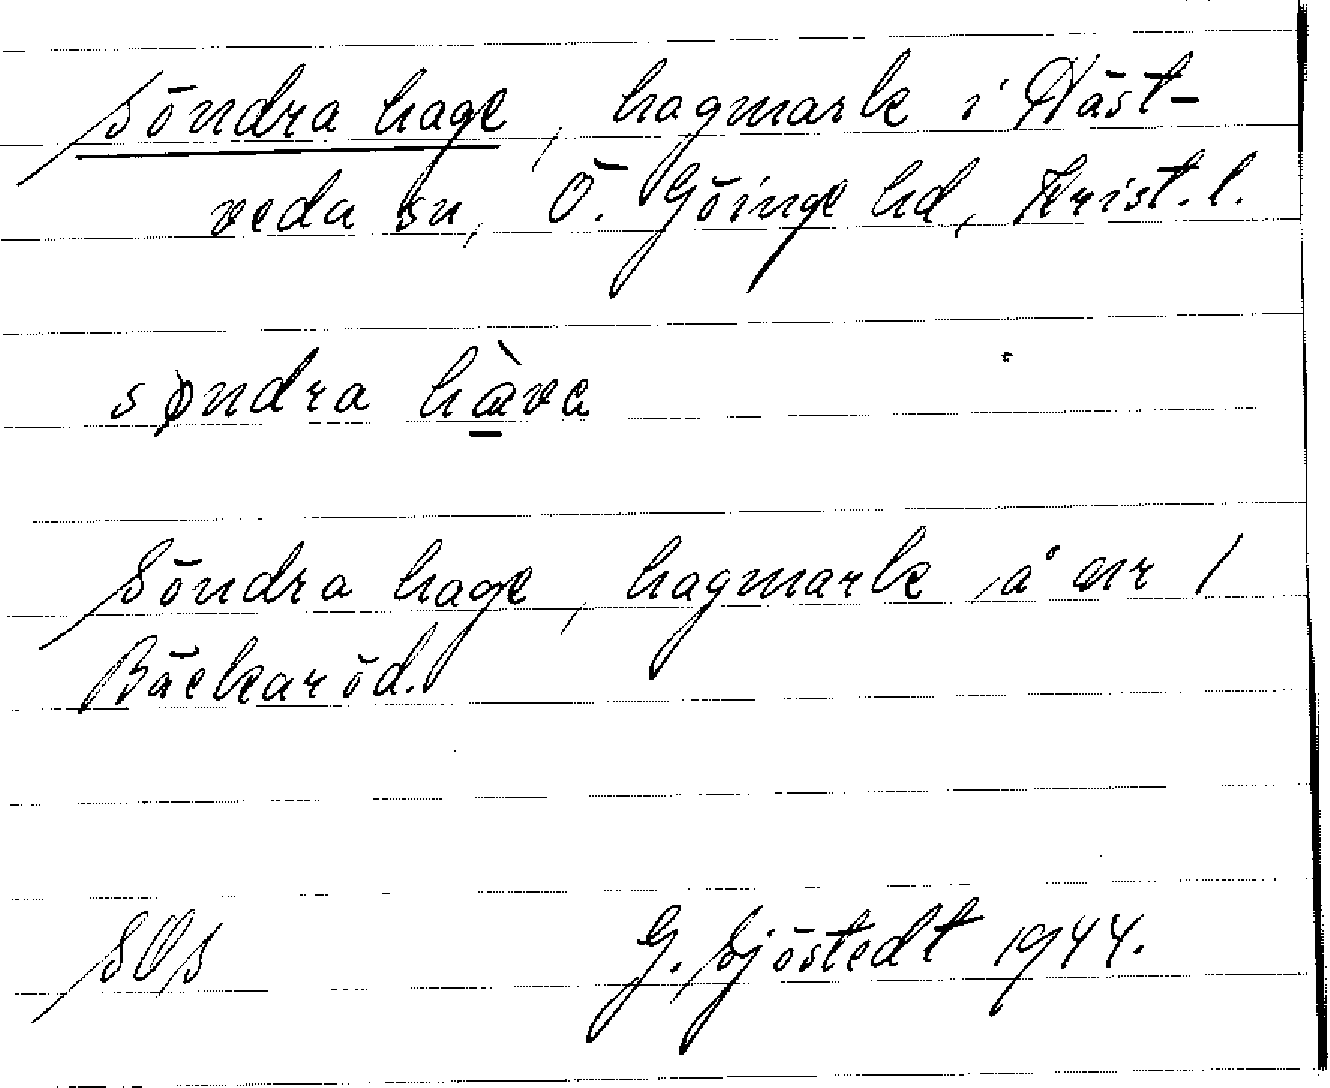 Söndra hage, hagmark i Häst-
veda sn, Ö. Göinge hd, Krist. l.
søndra hàva
Söndra hage, hagmark å nr 1
Bäckaröd.
SOS G. Sjöstedt 1944.